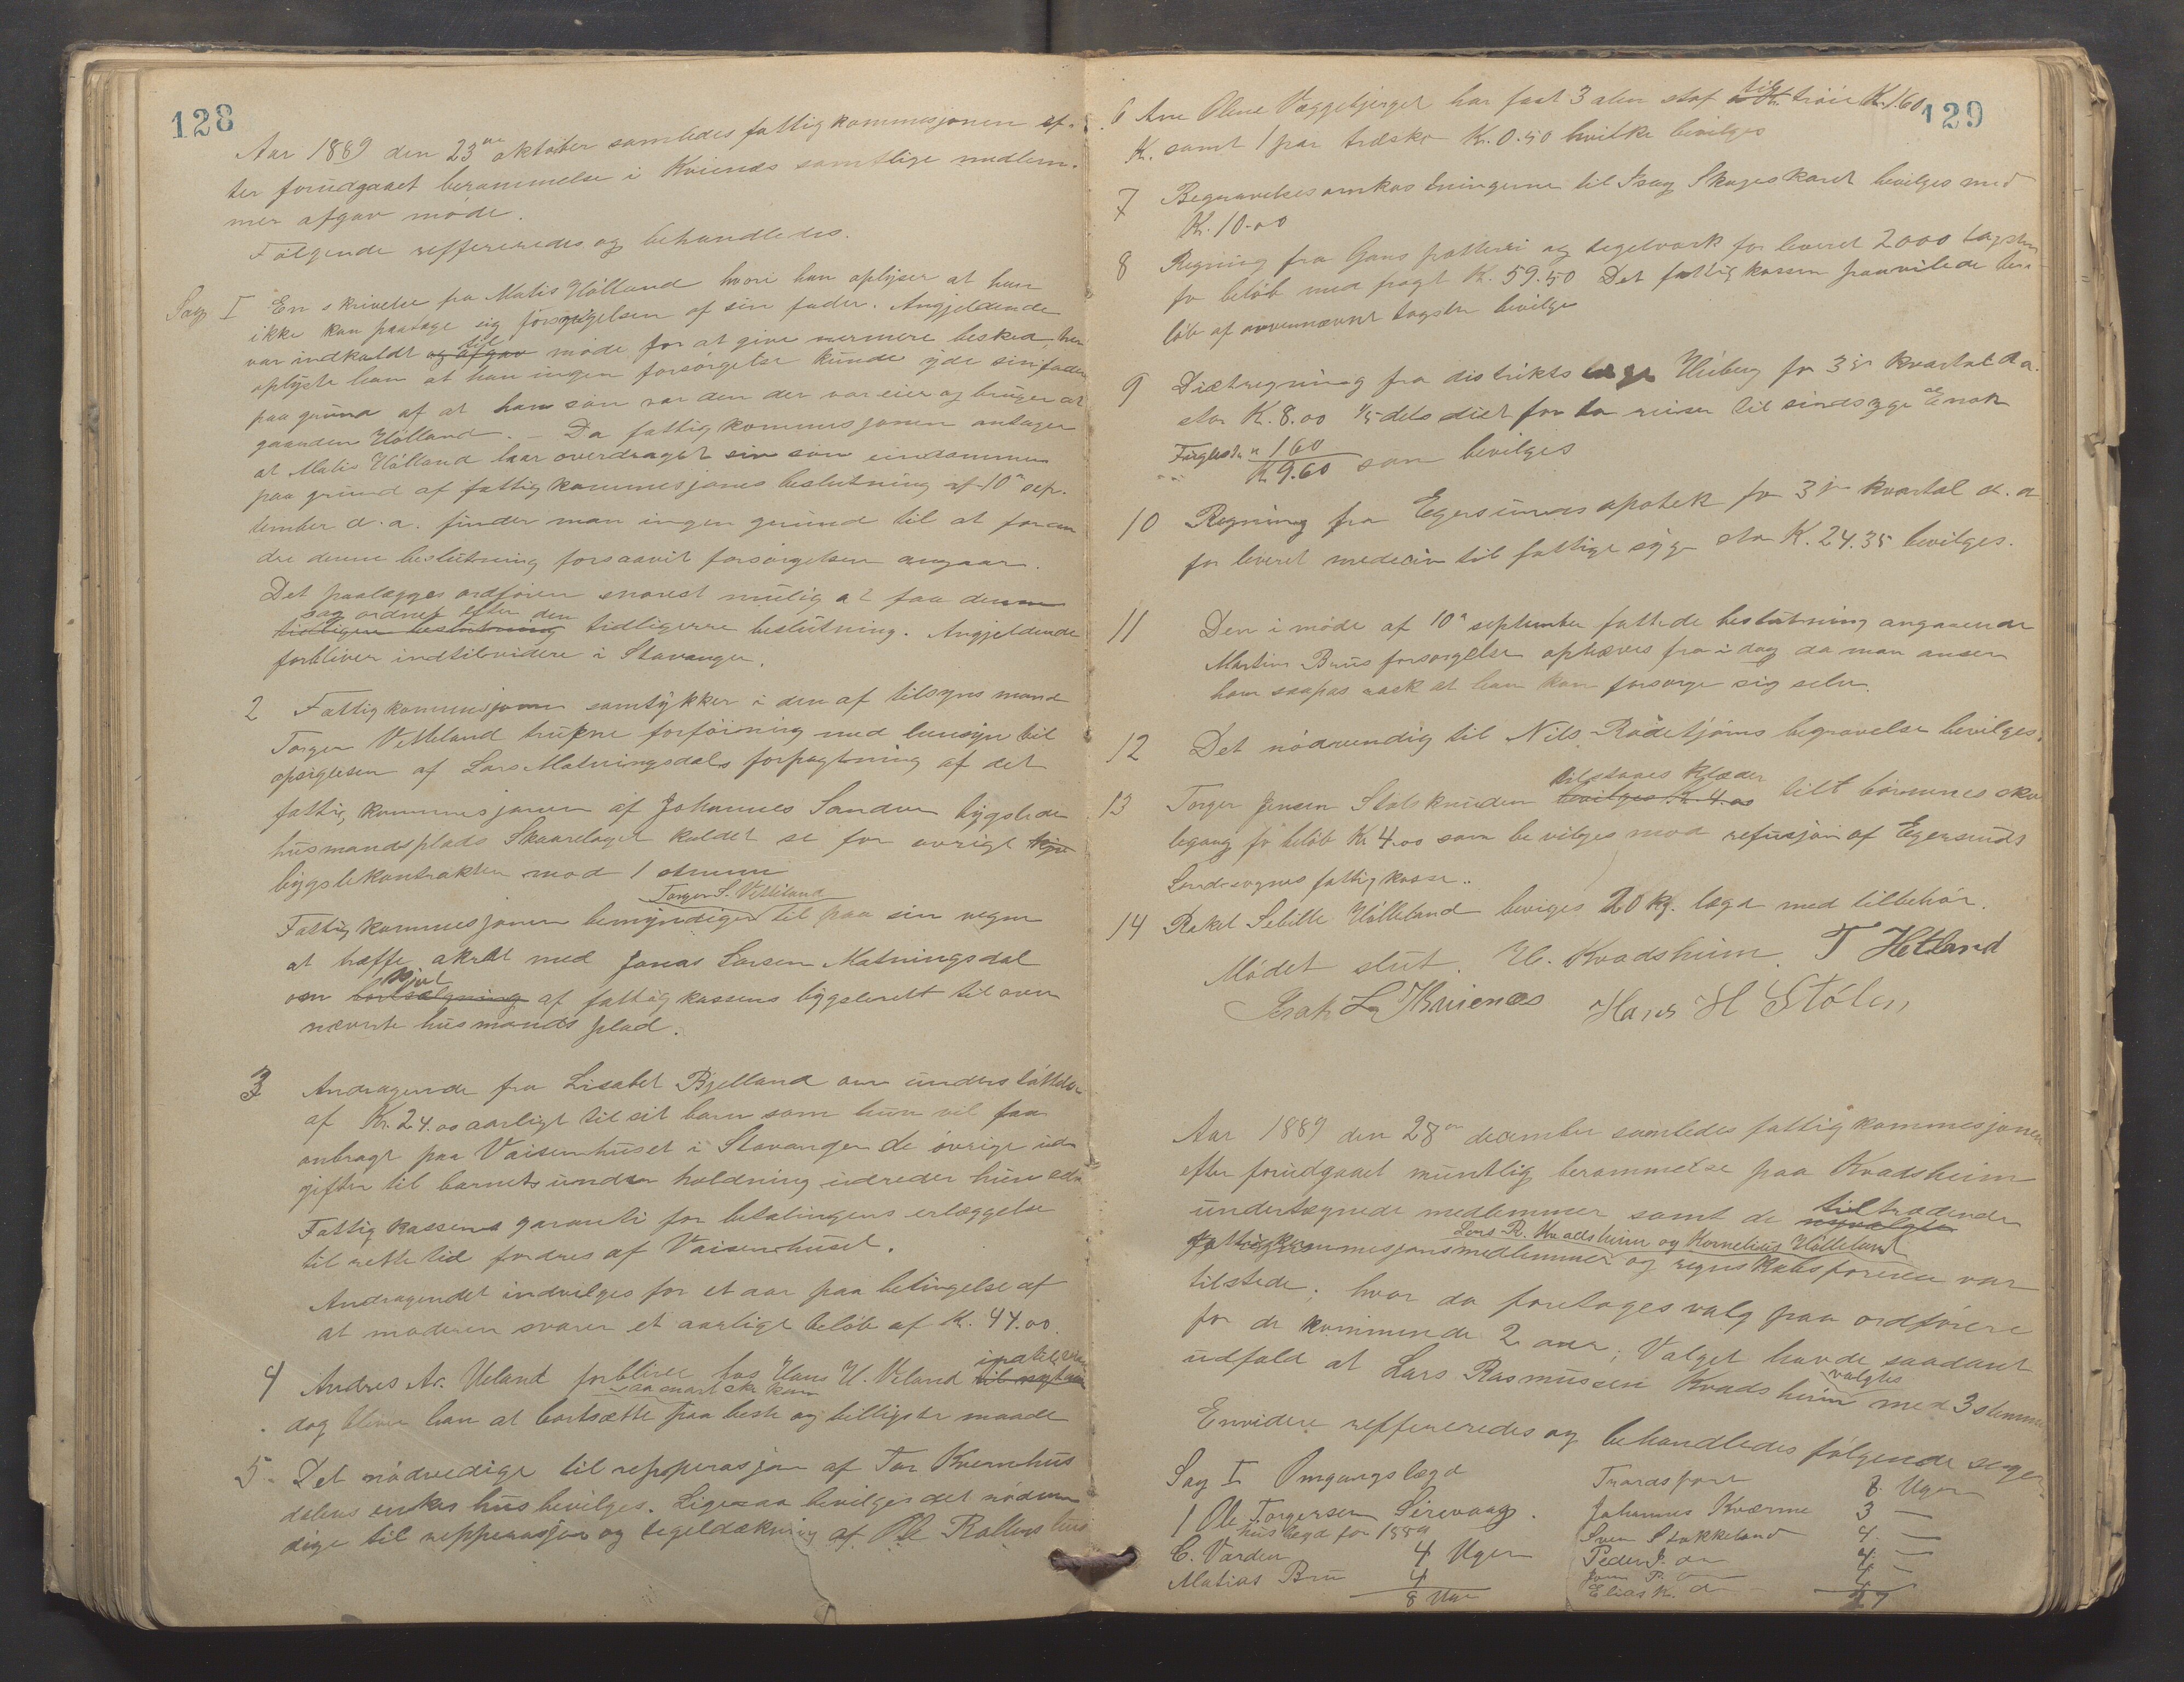 128
Aar 1889 den 23de oktober samledes fattigkommesjonen ef-
ter forudgaaet berammelse i Kvienes samtlige medlem-
mer afgav møde.
Følgende reffereredes og behandledes.
Sag I En skrivelse fra Matis Hölland hvori han oplyser at han
ikke kan paatage sig forsørgelsen af sin fader. Angjeldende
var indkaldt og afgav til møde for at give nermere besked, her
oplyste han at han ingen forsørgelse kunde yde sin fader
paa grund af at han søn var den der var eier og bruger at
gaarden Hölland. – Da fattigkommesjonen antager
at Matis Hölland har overdraget sin søn eindommen
paa grund af fattigkommesjones beslutning af 10de sep-
tember d.a. finder man ingen grund til at foran
dre denne beslutning forsaavit forsørgelsen angaar.
Det paalægges ordføren snarest mulig at faa denne
sag ordnet efter den
tidligere beslutning tidligerre beslutning. Angjeldende
forbliver indtilvidere i Stavanger.
2 Fattigkommesjonen samtykker i den af tilsynsmand
Torger Vetteland trufne forføining med hensyn til
opsigelsen af Lars Matningsdals forpagtning af det
fattigkommesjonen af Johannes Sandve bygslede
husmandsplads Skaarelaget kaldet se for øvrigt
bygslekontrakten mod 1
Torger S. Vetteland
Fattigkommesjonen bemyndiger til paa sin vegne
at træffe akort med Jonas Larsen Matningsdal
kjøb
om bortsælgning af fattigkassens bygselrett til oven
nævnte husmands plad.
3 Andragende fra Lisabet Bjelland om understøttelse
af Kr. 24.00 aarligt til sit barn som hun vil faa
anbragt paa Vaisenhuset i Stavanger de øvrige ud
gifter til barnets underholdning udreder hun selv
Fattigkassens garanti for betalingens erlæggelse
til rette tid fordres af Vaisenhuset.
Andragendet indvilges for et aar paa betingelse af
at moderen svarer et aarligt beløb af Kr. 44.00.
4 Andres Ar. Ueland forbliver hos Hans H. Veland
saa snart ske kan
dog bliver han at bortsætte paa beste og billigste maade
5 Det nødvedige til repperasjon af Tor Kvernhus
dalens enkes hus bevilges. Ligesaa bevilges det nødven
dige til repperasjon og tegeldækning af Ole Rallens hus
129
6 Ane Oline Væggebjerget har faat 3 alen stof til trøie Kr. 1.60
Kr. samt 1 par træsko Kr. 0.50 hvilke bevilges
7 Begravelsesomkostningerne til Isag Skageskaret bevilges med
Kr. 10.00
8 Regning fra Gans potteri og tegelværk for leveret 2000 tagsten
for beløb med fragt Kr. 59.50 Det fattigkassen paavilede be-
løb af ovennævnt tagsten bevilges
9 Diætregning fra distriktslæge Uleberg for 3die kvartal d.a.
stor Kr. 8.00 1/5 dels diet for to reiser til sindsyge Enok
Fargested 1.60
Kr 9.60 som bevilges
10 Regning fra Egersunds apotek for 3die kvartal d.a
for leveret medecin til fattige syge stor K. 24.35 bevilges.
11 Den i møde af 10de september fattede beslutning angaaende
Martin Brus forsørgelse ophæves fra i dag da man anser
ham saapas rask at han kan forsørge sig selv.
12 Det nødvendig til Nils Rödetjörns begravelse bevilges.
tilstaaes klæder
13 Torger Jensen Stölsknuden bevilges Kr. 4.00 till børnenes sko
legang for beløb Kr 4.00 som bevilges mod refusjon af Egersunds
Landsogns fattigkasse.
14 Rakel Sebille Hölleland beviges 20 kg. lægd med tilbehør.
Mødet slut. H. Kvadsheim. T Hetland
Isak L. Kvienæs Hans H Stölen
Aar 1889 den 28de december samledes fattigkommesjonen
efter forudgaaet muntlig berammelse paa Kvadsheim
undertegnede medlemmer samt de nyvalgte tiltrædende
Lars R. Kvadsheim og Kornelius Hölleland
fattigkommesjonsmedlemmer og regnskabsføreren var
tilstede; hvor da foretages valg paa ordførere
for de kommende 2 aar; Valget havde saadant
valgtes
udfald at Lars Rasmussen Kvadsheim med 3 stemmer
Envidere reffereredes og behandledes følgende sager
Sag I Omgangslægd
1 Ole Torgersen Sirevaag.
huslægd for 1889
C. Varden 4 Uger
Matias Bru 4
8 Uger
Transport 8 Uger
Johannes Kværme 3 —
Sven Stokkeland 4 —
Peder J. do 4 —
P. do 4 —
Elias K. do 4
27